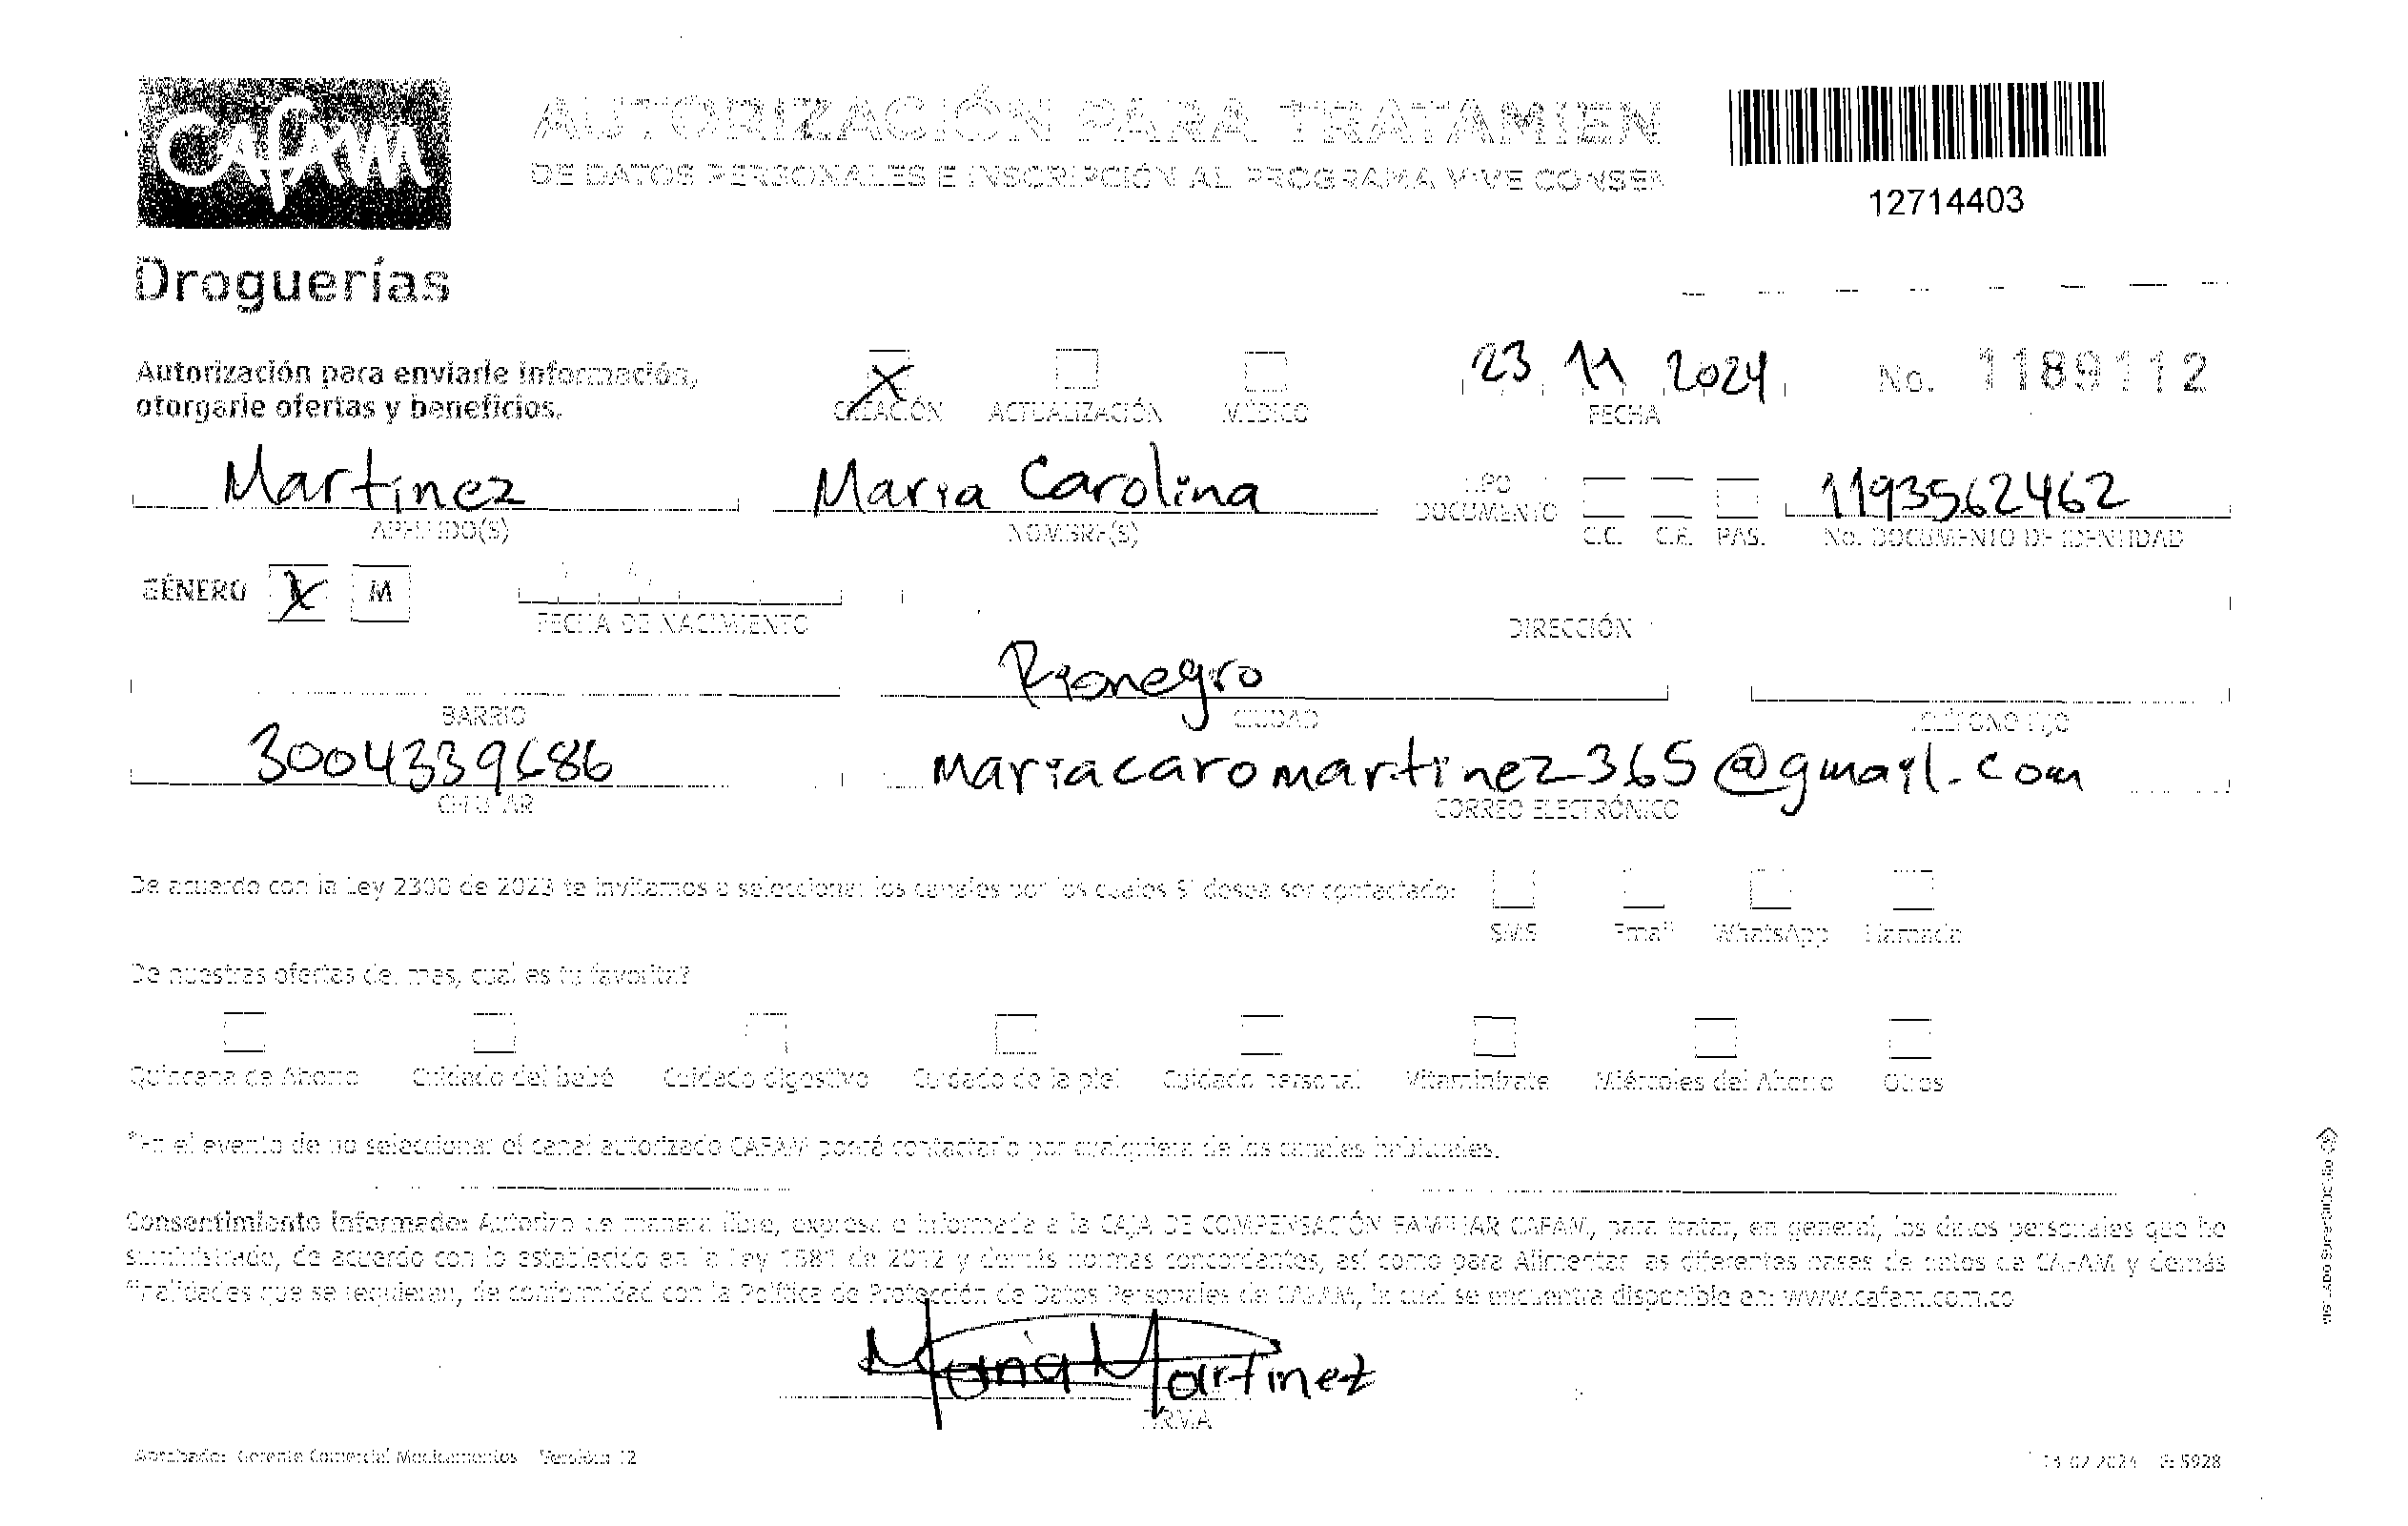 Cafam
Droguerías
AUTORIZACIÓN PARA TRATAMIEN
DE DATOS PERSONALES E INSCRIPCIÓN AL PROGRAMA VIVE CONSEN
12714403
Autorización para enviarle información,
otorgarle ofertas y beneficios.
CREACIÓN ACTUALIZACIÓN MÉDICO
23 11 2024
FECHA
No. 1189112
Martinez Maria Carolina 1193562462
APELLIDO(S) NOMBRE(S) TIPO DOCUMENTO C.C. C.E. PAS. No. DOCUMENTO DE IDENTIDAD
GÉNERO X M
FECHA DE NACIMIENTO DIRECCIÓN
Rionegro
BARRIO CIUDAD TELÉFONO FIJO
3004339686 mariacaromartinez365@gmail.com
CELULAR CORREO ELECTRÓNICO
De acuerdo con la Ley 2300 de 2023 te invitamos a seleccionar los canales por los cuales SI desea ser contactado:
SMS Email WhatsApp Llamada
De nuestras ofertas del mes, cual es tu favorita?
Quincena de Ahorro Cuidado del bebé Cuidado digestivo Cuidado de la piel Cuidado personal Vitaminízate Miércoles del Ahorro Otros
*En el evento de no seleccionar el canal autorizado CAFAM podrá contactarlo por cualquiera de los canales habituales.
Consentimiento informado: Autorizo de manera libre, expresa e informada a la CAJA DE COMPENSACIÓN FAMILIAR CAFAM, para tratar, en general, los datos personales que he
suministrado, de acuerdo con lo establecido en la Ley 1581 de 2012 y demás normas concordantes, así como para Alimentar las diferentes bases de datos de CAFAM y demás
finalidades que se requieran, de conformidad con la Política de Protección de Datos Personales de CAFAM, la cual se encuentra disponible en: www.cafam.com.co
Maria Martinez
FIRMA
Aprobado: Gerente Comercial Medicamentos Versión: 12
VIGILADO SuperSubsidio